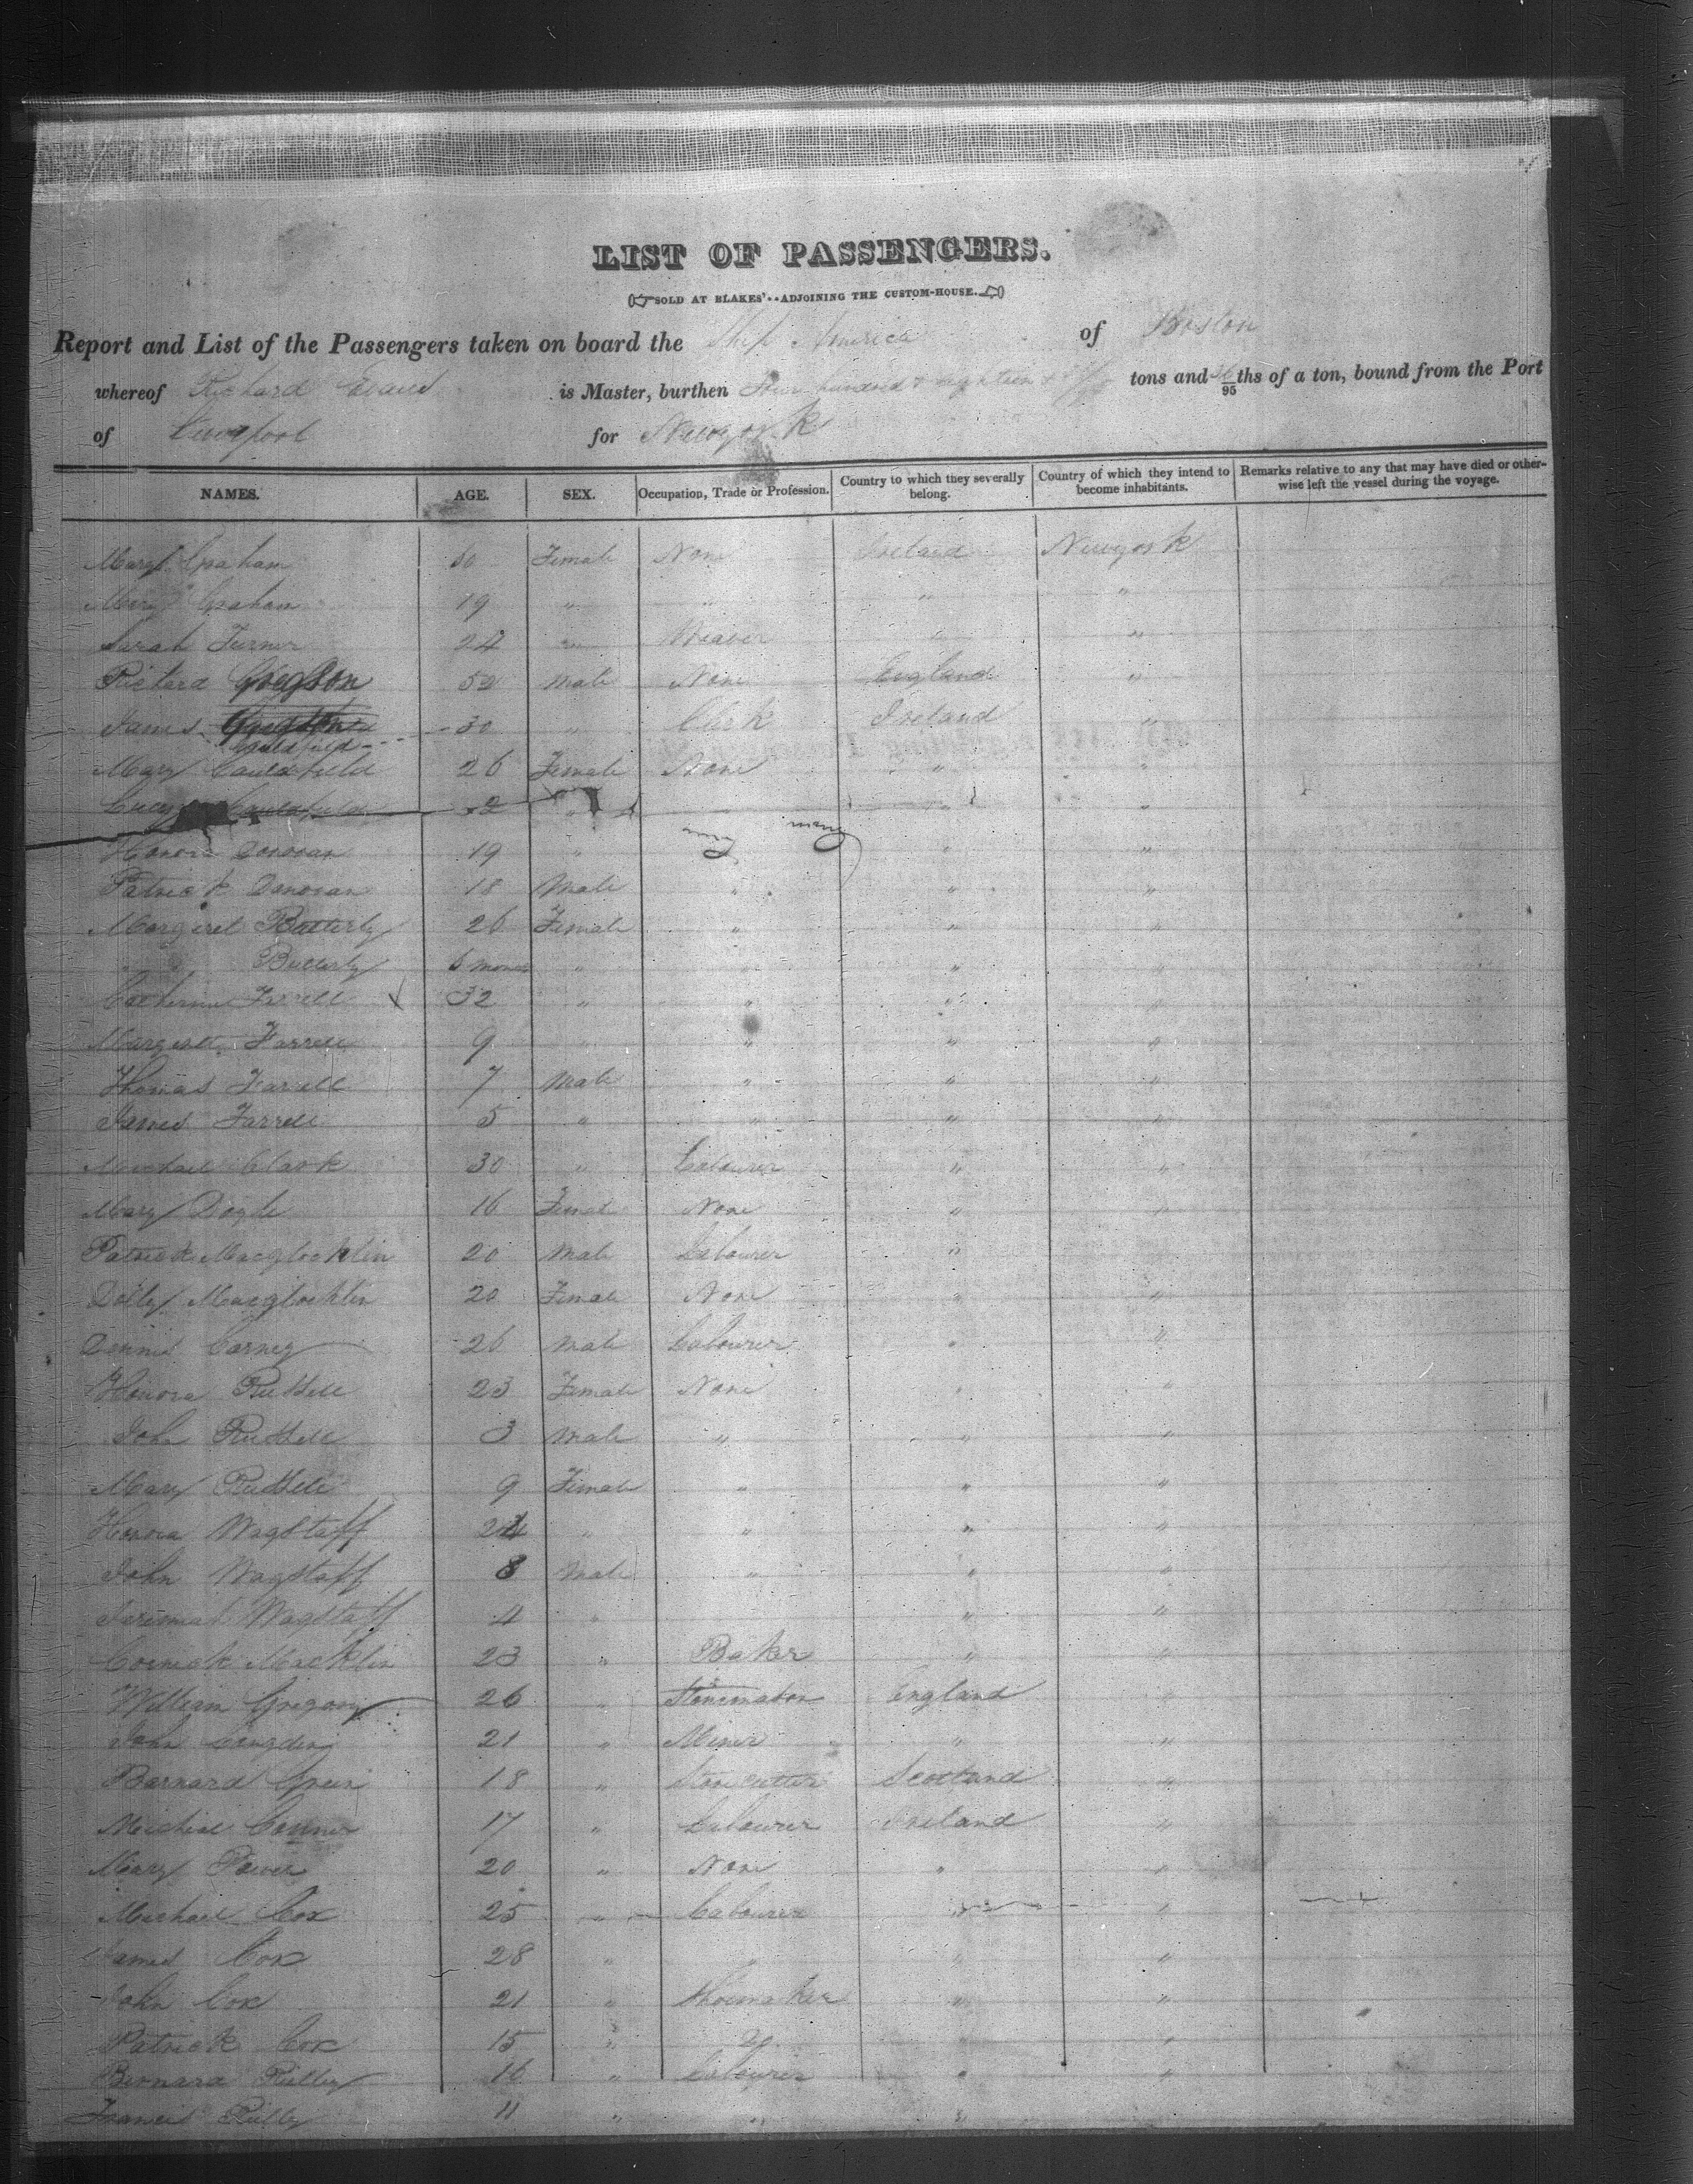 LIST OF PASSENGERS.
SOLD AT BLAKES'..ADJOINING THE CUSTOM-HOUSE.
Report and List of the Passengers taken on board the Ship America of Boston
whereof Richard Evans is Master, burthen hundred & Eighteen tons and 36/95ths of a ton, bound from the Port
of Liverpool for Newyork
NAMES. AGE. SEX. Occupation, Trade or Profession. Country to which they severally belong. Country of which they intend to become inhabitants. Remarks relative to any that may have died or otherwise left the vessel during the voyage.
Mary Graham Female None Ireland Newyork
Mary Graham 19 " " " "
Sarah Turner 24 " Weaver " "
Richard Gregson 52 Male None England "
James 30 " Clerk Ireland "
Cauldfield
Mary Cauldfield 26 Female None " "
Lucy Cauldfield 2 " " "
Honora Donovan 19 " " "
Patrick Donovan 18 Male " " "
Margeret Butterly 26 Female " " "
Butterly 6 mons " " " "
Catherine Farrell 32 " " " "
Margeret Farrell 9 " " " "
Thomas Farrell 7 Male " " "
James Farrell 5 " " " "
Michael Clark 30 " Labourer " "
Mary Doyle 16 Female None " "
Patrick Macglocklin 20 Male Labourer " "
Dolly Macglocklin 20 Female None " "
Dennis Carney 26 Male Labourer " "
Honora Russell 23 Female None " "
John Russell 3 Male " " "
Mary Russell 9 Female " " "
Honora Wagstaff 24 " " " "
John Wagstaff 8 Male " " "
Jerimah Wagstaff 4 " " "
Cormick Macklin 23 " Baker " "
William Gregory 26 " Stonemason England "
John Congdon 21 " Miner " "
Barnard Green 18 " Stone cutter Scotland "
Michael Conner 17 " Labourer Ireland "
Mary Power 20 " None " "
Michael Cox 25 " Labourer " "
James Cox 28 " " " "
John Cox 21 " Shoemaker " "
Patrick Cox 15 " Do " "
Bernard Rielley 16 " Labourer " "
Francis Rielly 11 " " "